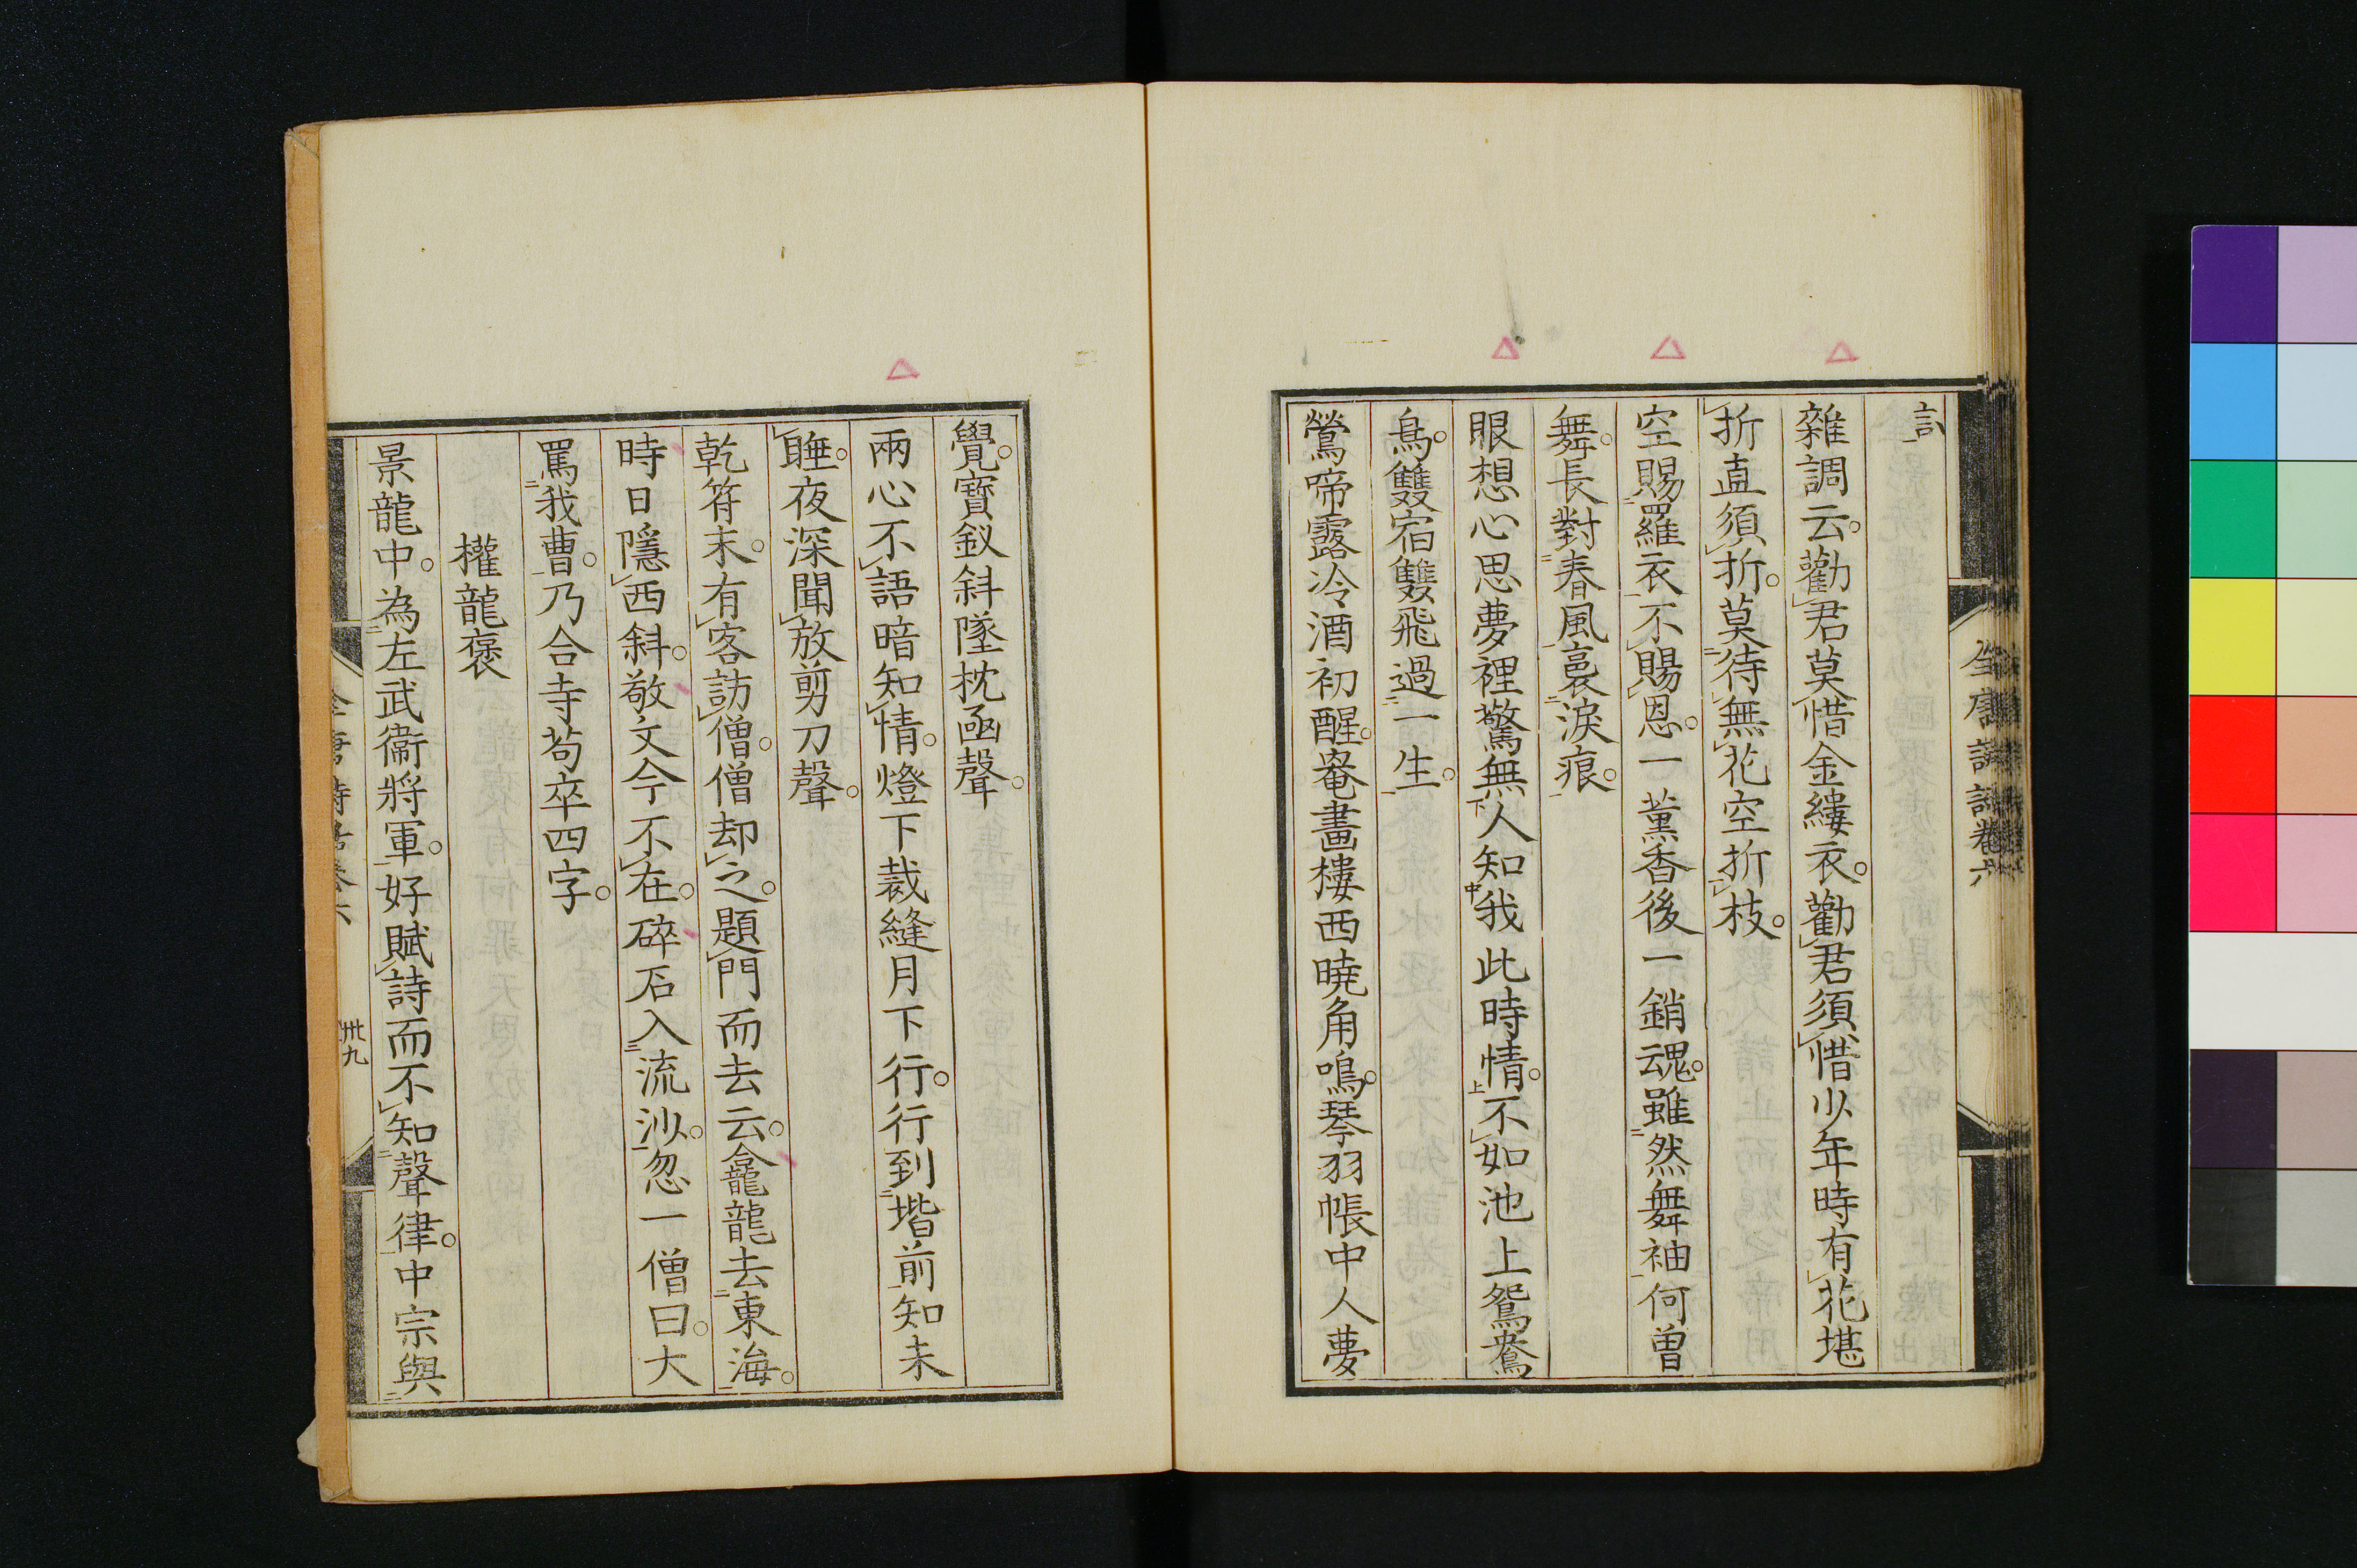 訁
雜調云勸君莫惜金縷衣勸君須惜少年時有花堪
折直須折莫待無花空折枝
空賜羅衣不賜恩一薰香後一銷魂雖然舞袖何曾
舞長對春風裛淚痕
眼想心思夢裡驚無人知我此時情不如池上鴛鴦
鳥雙宿雙飛過一生
鶯啼露冷酒初醒罨畫樓西曉角鳴琴羽帳中人夢
全唐詩話卷六
覺寶釵斜墜枕函聲
兩心不語暗知情燈下裁縫月下行行到堦前知未
睡夜深聞放剪刀聲
乾符末有客訪僧僧却之題門而去云龕龍去東海
時日隱西斜敬文今不在碎石入流沙忽一僧曰大
罵我曹乃合寺苟卒四字
權龍褒
景龍中為左武衞將軍好賦詩而不知聲律中宗與
全唐詩話卷六
卅九